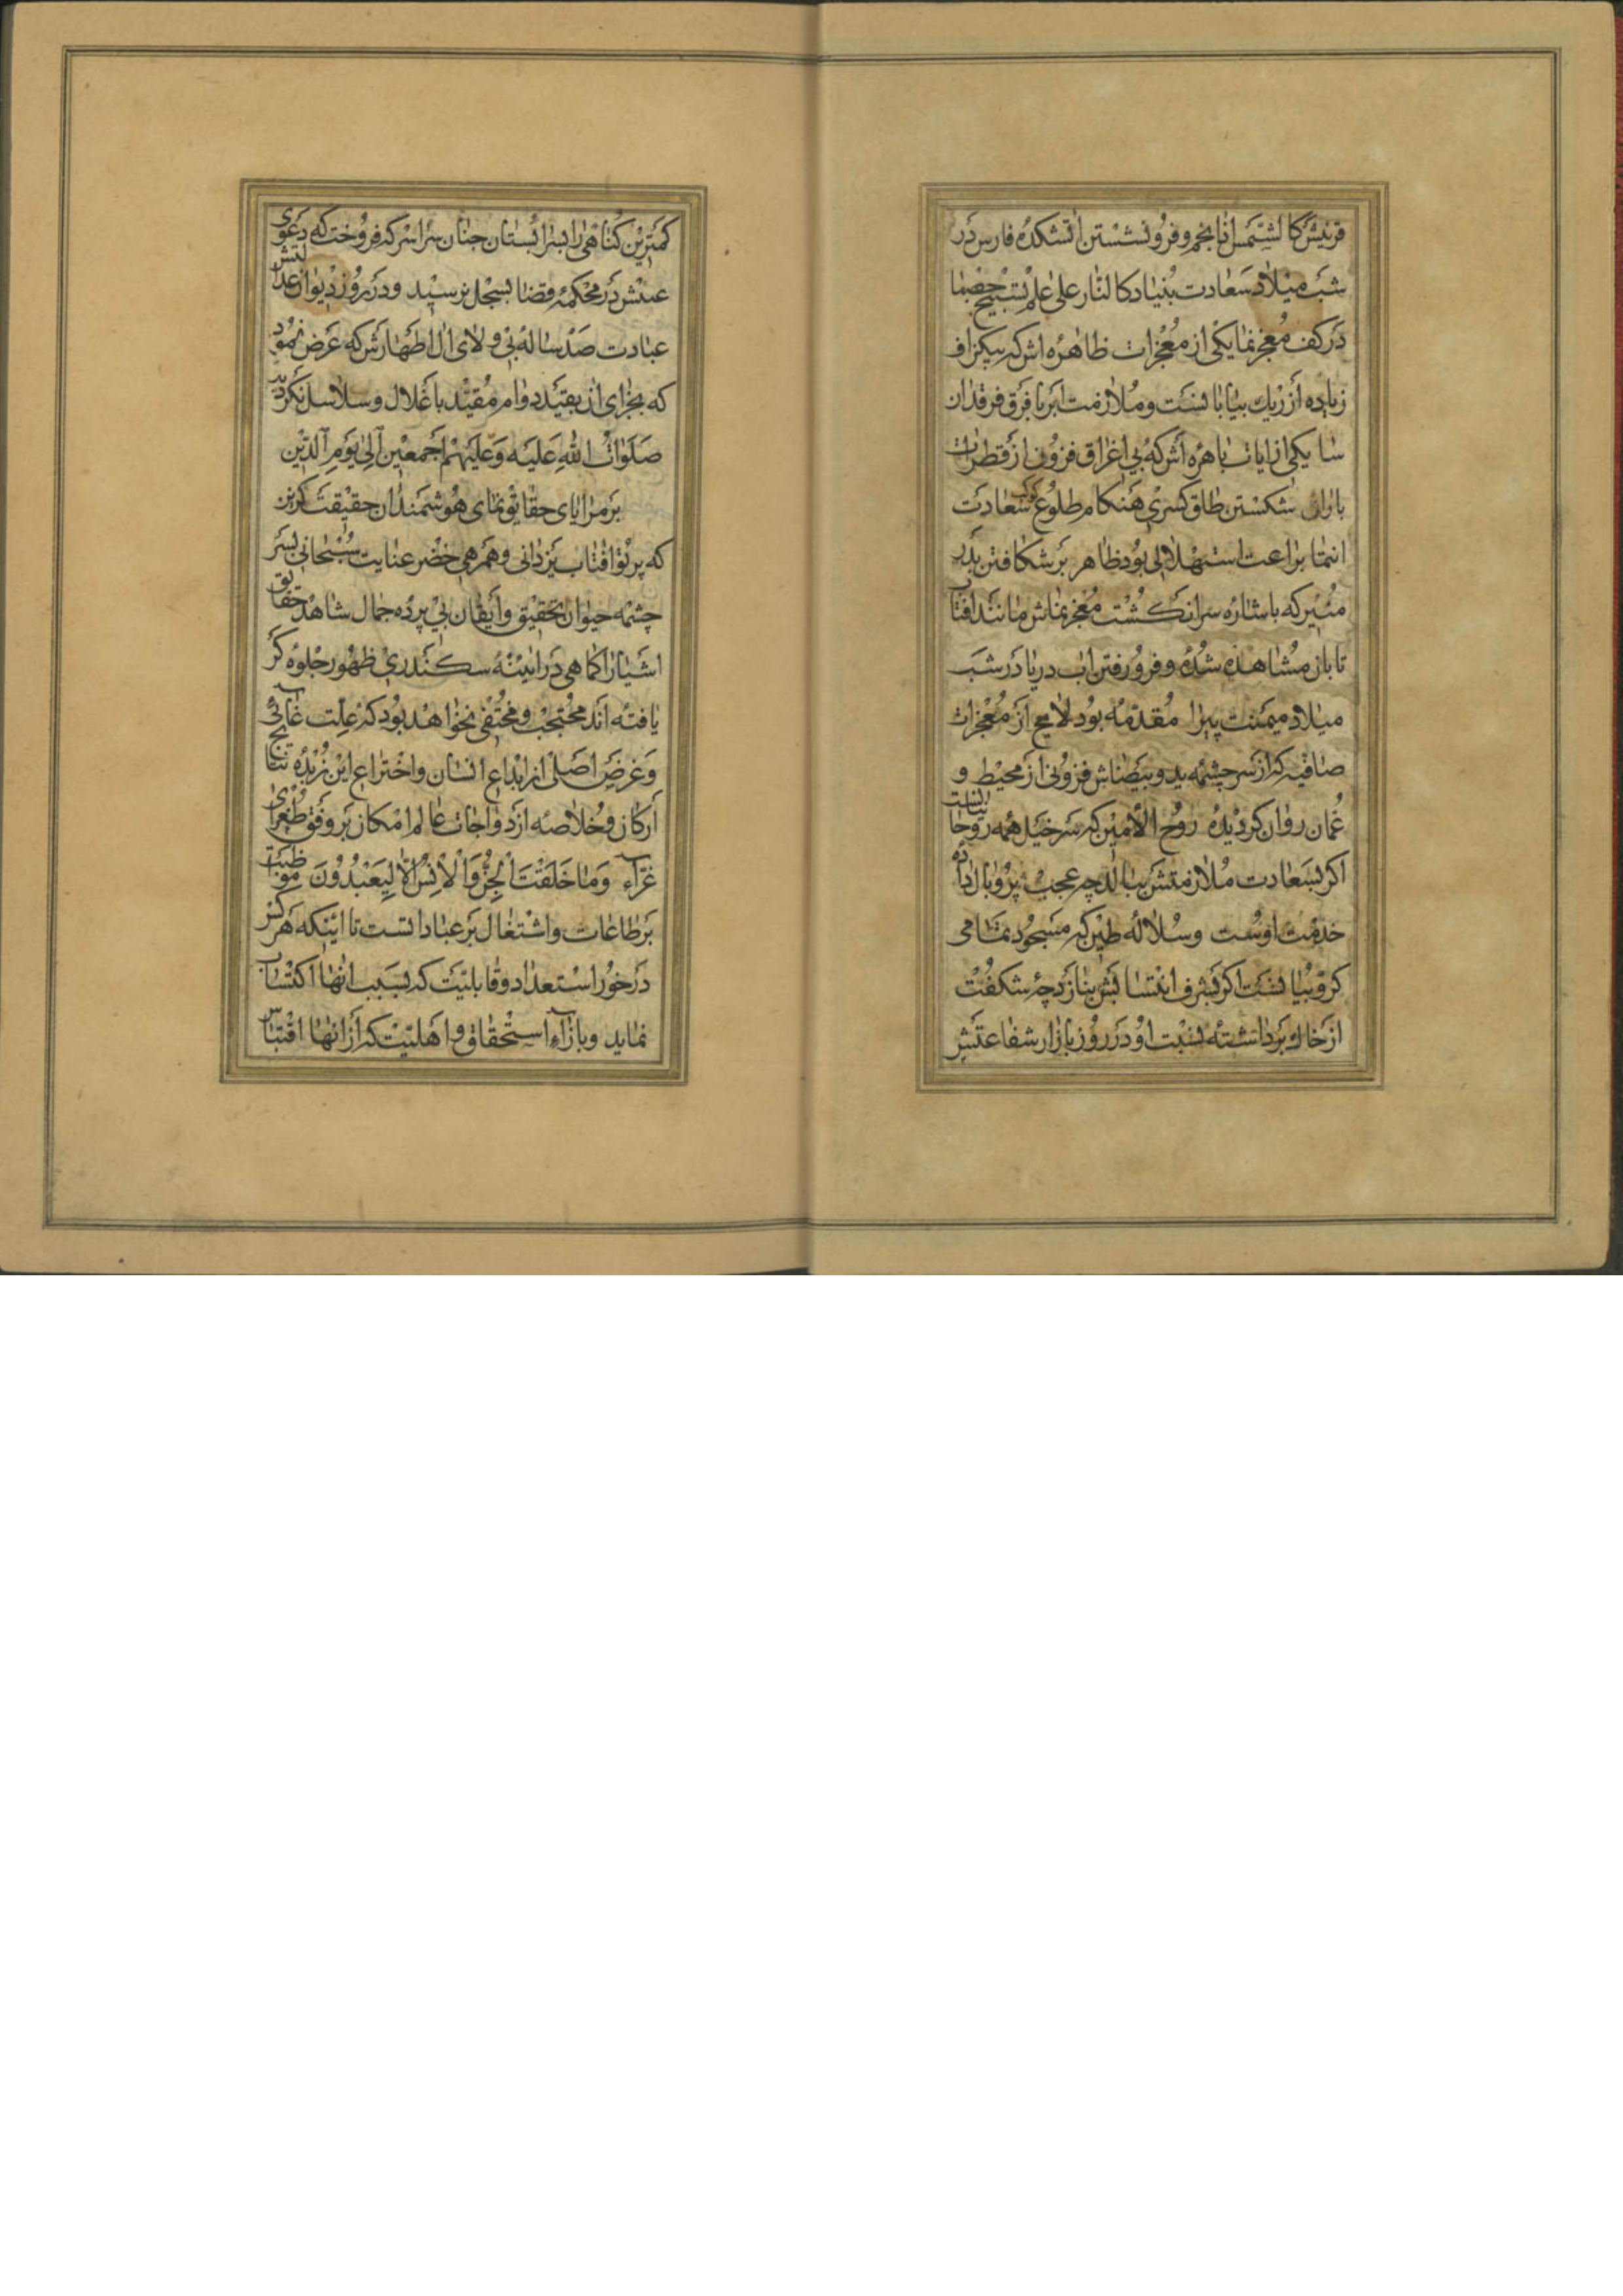 قرینش کالشمس بانجم و فرو نشستن اتشکدۀ فارس در
شب میلاد سعادت بنیاد کالنار علی علم تسبیح حصبا
در کف معجز نما یکی از معجزات ظاهره اش که بیکزاف
زیاده از ریك بیابانست و ملازمت ابر با فرق فرقدان
سا یکی از ایات باهره اش که بی اغراق فزون از قطرات
باران شکستن طاق کسری هنکام طلوع کوکب سعادت
انتما براعت استهلالی بود ظاهر بر شکافتن بدر
منیر که باشاره سر انکشت معجز نماش مانند افتاب
تابان مشاهده شده و فرو رفتن اب دریا در شب
میلاد میمنت پیرا مقدمه بود لامح از معجزات
صافیه که از سر چشمه ید و بیضاش فزونی از محیط و
عمان روان کردیده روح الامین که سر خیل همه روحانیانست
اکر بسعادت ملازمتش ببالد چه عجب پر و بال داده
خدمت اوست و سلاله طین که مسجود تمامی
کروبیانست اکر بشرف انتسابش بنازد چه شکفت
از خاك برداشته نسبت او در روز بازار شفاعتش
کمترین کناهی را بسرابستان جنان سراسر که فروخت که دعوی
عبنش در محکمۀ قضا بسجل نرسید و در روز دیوان عدالتش
عبادت صد ساله بی ولای ال اطهارش که عرض نمود
که بجزای ان بقید دوام مقید باغلال و سلاسل نکردید
صلوات الله علیه و علیهم اجمعین الی یوم الدین
بر مرایای حقایق نمای هوشمندان حقیقت کزین
که پرتو افتاب یزدانی و همرهی خضر عنایت سبحانی بسر
چشمه حیوان تحقیق و ایقان بی پرده جمال شاهد حقایق
اشیا را کما هی در اینۀ سکندری ظهور جلوه کر
یافته اند محتجب و مختفی نخواهد بود که علت غائی
و غرض اصلی از ابداع انسان و اختراع این زبدۀ نتایج
ارکان و خلاصه ازدواجات عالم امکان بر وفق طغرای
غراء وما خلقت الجن والانس الا لیعبدون مواظبت
بر طاعات و اشتغال بر عباداتست تا اینکه هر کس
در خور استعداد و قابلیت که بسبب انها اکتساب
نماید و بازاء استحقاق و اهلیت که از انها اقتباس